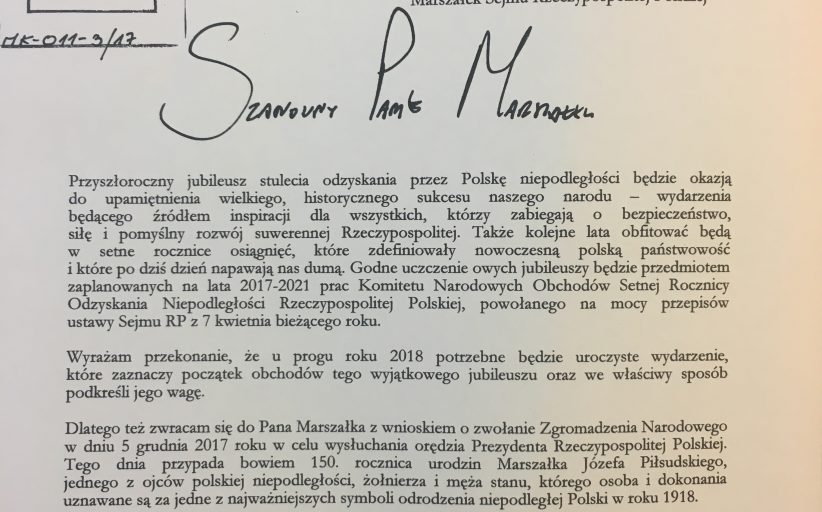 Marszałek Sejmu Rzeczypospolitej Polskiej
MK-011-3/17
Szanowny Panie Marszałku
Przyszłoroczny jubileusz stulecia odzyskania przez Polskę niepodległości będzie okazją
do upamiętnienia wielkiego, historycznego sukcesu naszego narodu – wydarzenia
będącego źródłem inspiracji dla wszystkich, którzy zabiegają o bezpieczeństwo,
siłę i pomyślny rozwój suwerennej Rzeczypospolitej. Także kolejne lata obfitować będą
w setne rocznice osiągnięć, które zdefiniowały nowoczesną polską państwowość
i które po dziś dzień napawają nas dumą. Godne uczczenie owych jubileuszy będzie przedmiotem
zaplanowanych na lata 2017-2021 prac Komitetu Narodowych Obchodów Setnej Rocznicy
Odzyskania Niepodległości Rzeczypospolitej Polskiej, powołanego na mocy przepisów
ustawy Sejmu RP z 7 kwietnia bieżącego roku.
Wyrażam przekonanie, że u progu roku 2018 potrzebne będzie uroczyste wydarzenie,
które zaznaczy początek obchodów tego wyjątkowego jubileuszu oraz we właściwy sposób
podkreśli jego wagę.
Dlatego też zwracam się do Pana Marszałka z wnioskiem o zwołanie Zgromadzenia Narodowego
w dniu 5 grudnia 2017 roku w celu wysłuchania orędzia Prezydenta Rzeczypospolitej Polskiej.
Tego dnia przypada bowiem 150. rocznica urodzin Marszałka Józefa Piłsudskiego,
jednego z ojców polskiej niepodległości, żołnierza i męża stanu, którego osoba i dokonania
uznawane są za jedne z najważniejszych symboli odrodzenia niepodległej Polski w roku 1918.